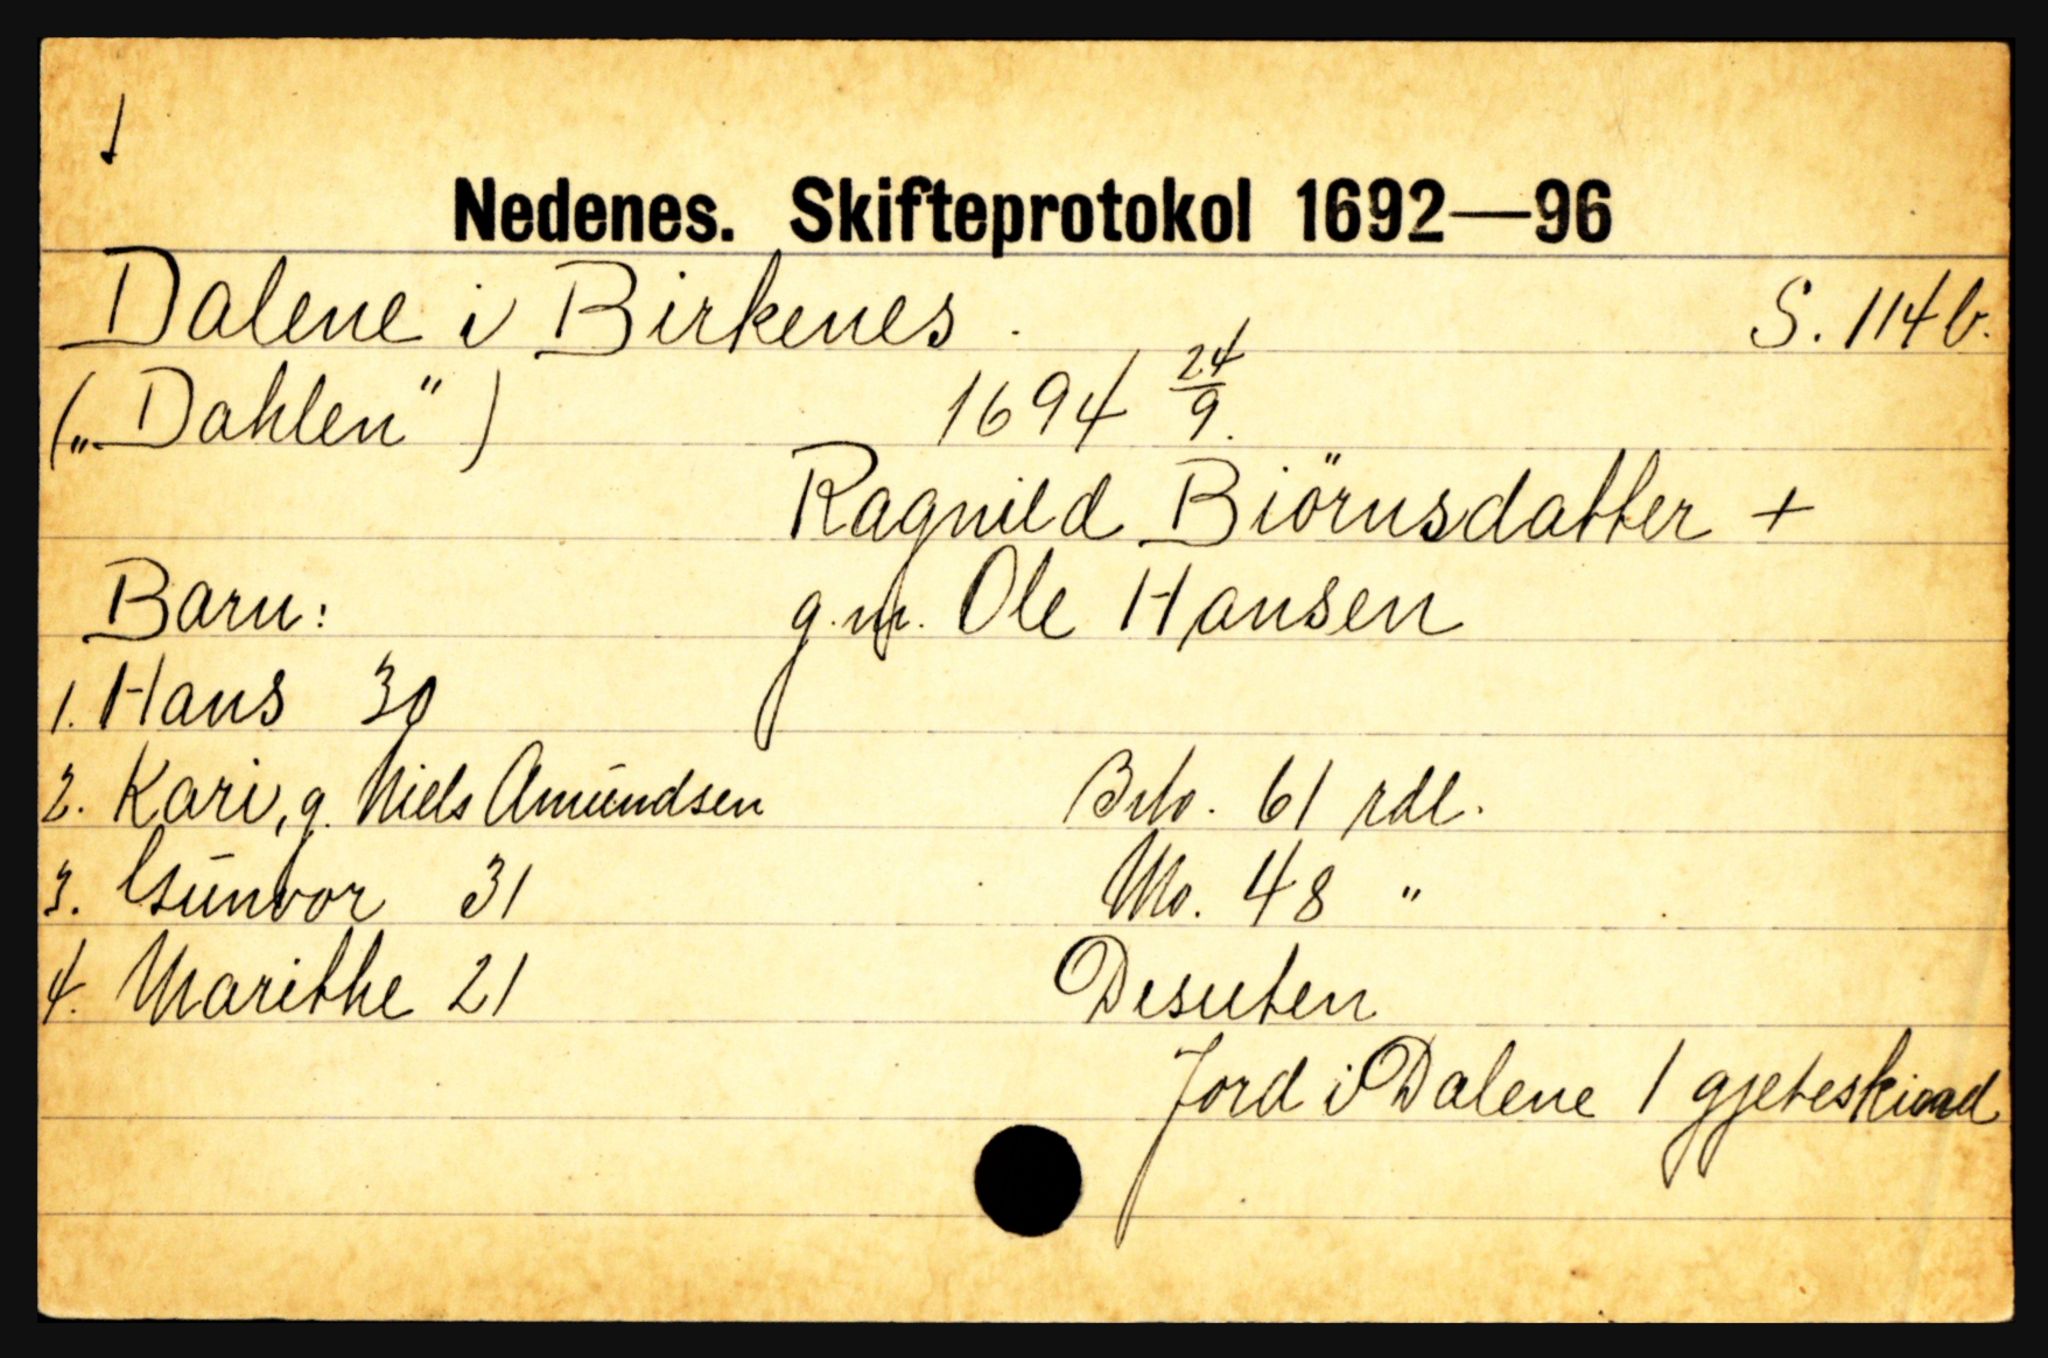 Nedenes. Skifteprotokol 1692—96
Dalene i Birkenes. S. 114b.
(„Dahlen") 1694 24/9.
Ragnild Biörnsdatter +
Barn: g.m. Ole Hansen
1. Hans 30
2. Kari, g. Niels Amundsen Bto. 61 rdl.
3. Gunvor 31 No. 48 "
4. Marithe 21 Desuten
Jord i Dalene 1 gjeteskind